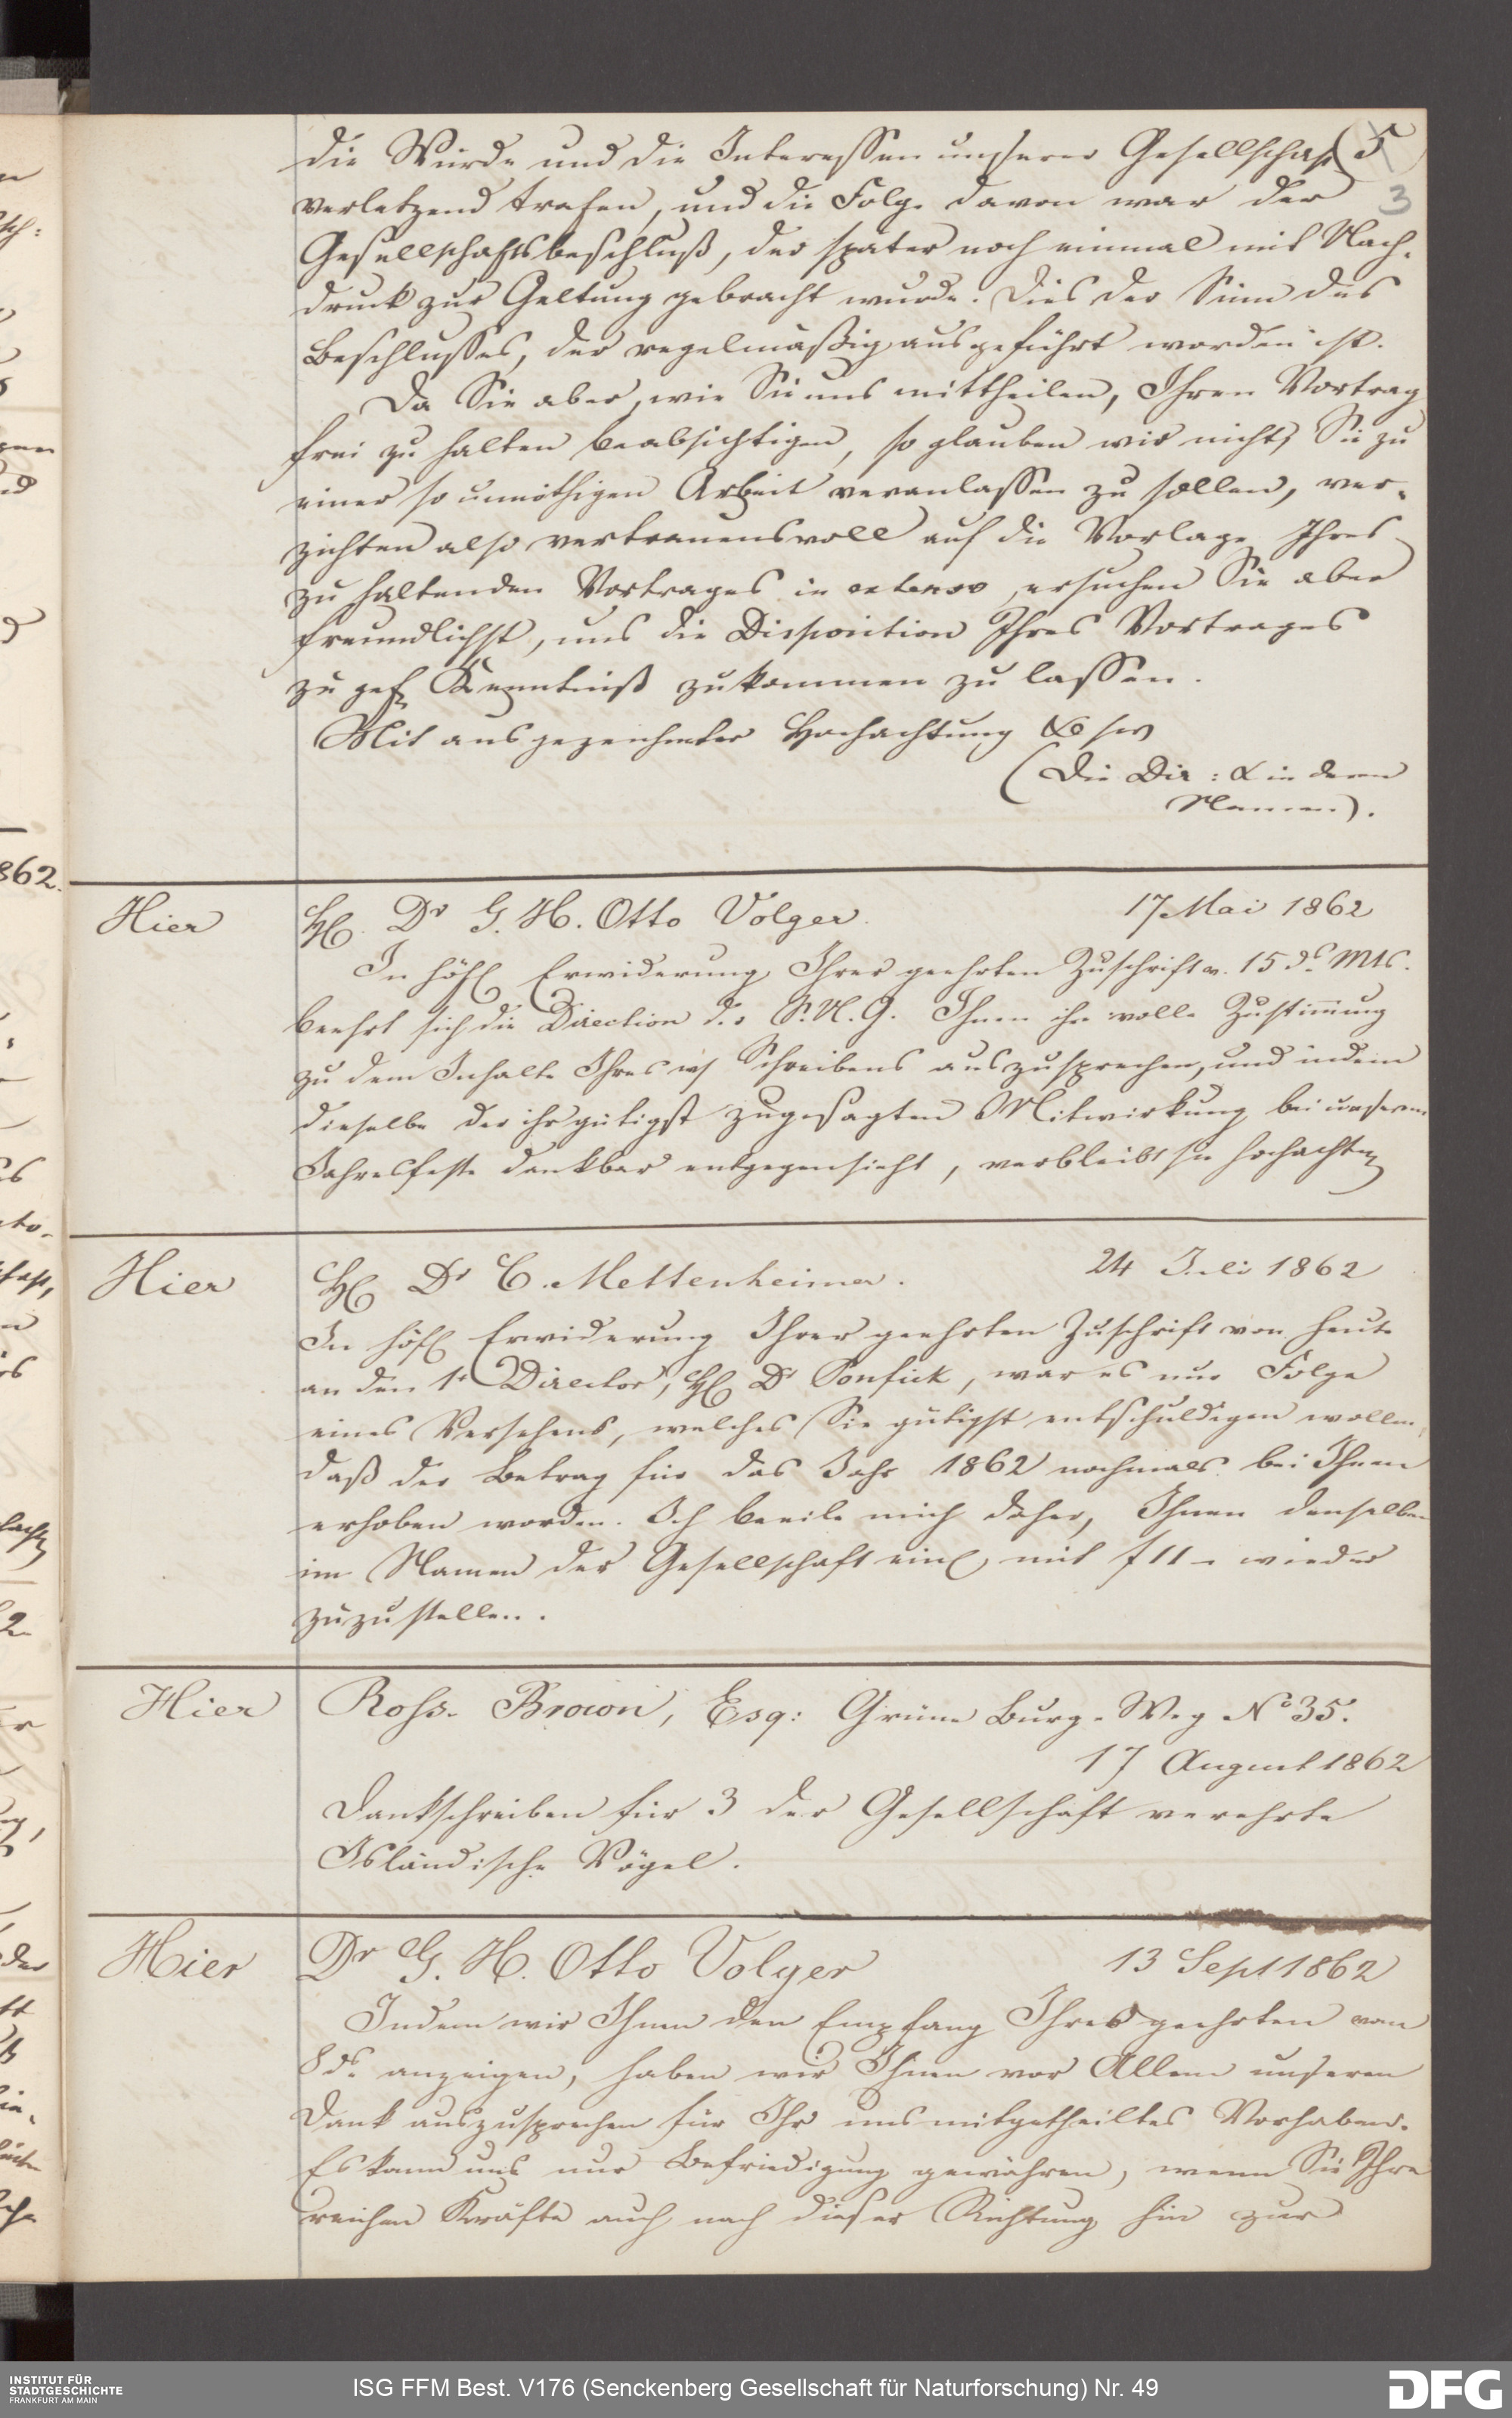 die Würde und die Interessen unserer Gesellschaft 5
verletzend trafen, und die Folge davon war der 3
Gesellschaftsbeschluß, der später noch einmal mit Nach-
druck zur Geltung gebracht wurde. Dies der Sinn des
Beschlusses, der regelmäßig ausgeführt worden ist.
Da Sie aber, wie Sie uns mittheilen, Ihren Vortrag
frei zu halten beabsichtigen, so glauben wir nicht, Sie zu
einer so unnöthigen Arbeit veranlassen zu sollen, ver-
zichten also vertrauensvoll auf die Vorlage Ihres
zu haltenden Vortrages in extenso, ersuchen Sie aber
freundlichst, uns die Disposition Ihres Vortrages
zu gef. Kenntniß zukommen zu lassen.
Mit ausgezeichneter Hochachtung
(Die Dir: & in deren
Namen).
Hier
H. Dr G. H. Otto Volger. 17 Mai 1862
In höfl Erwiderung Ihrer geehrten Zuschrift v. 15 ds. Mts.
beehrt sich die Direction der S. N. G. Ihnen ihre volle Zustimmung
zu dem Inhalte Ihres Schreibens auszusprechen, und indem
dieselbe der ihr gütigst zugesagten Mitwirkung bei unserem
Jahresfeste dankbar entgegensieht, verbleibt sie hochachtend
Hier
H. Dr C. Mettenheimer. 24 Juli 1862
In höfl Erwiderung Ihrer geehrten Zuschrift von heute
an den 1r Director, H. Dr Ponfick, war es nur Folge
eines Versehens, welches Sie gütigst entschuldigen wollen,
daß der Betrag für das Jahr 1862 nochmals bei Ihnen
erhoben worden. Ich beeile mich daher, Ihnen denselben
im Namen der Gesellschaft einl. mit f 11 - wieder
zuzustellen.
Hier
Ross-Brown, Esq: Grüne Burg-Weg No 35.
17 August 1862
Dankschreiben für 3 der Gesellschaft verehrte
Isländische Vögel.
Hier
Dr G. H. Otto Volger 13 Sept 1862
Indem wir Ihnen den Empfang Ihres geehrten vom
8 ds. anzeigen, haben wir Ihnen vor Allem unseren
Dank auszusprechen für Ihr uns mitgetheiltes Vorhaben.
Es kann uns nur Befriedigung gewähren, wenn Sie Ihre
reichen Kräfte auch nach dieser Richtung hin zur
862.
INSTITUT FÜR
STADTGESCHICHTE
FRANKFURT AM MAIN
ISG FFM Best. V176 (Senckenberg Gesellschaft für Naturforschung) Nr. 49
DFG